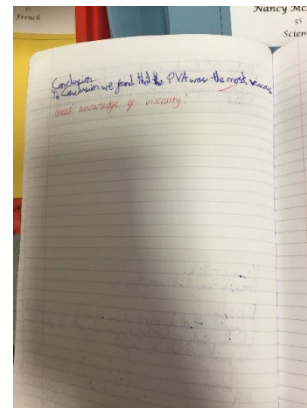 French
Nancy Mc
S5
Scien
Conclusion
To Conclusion we found that the PVA was the most viscous
Good knowledge of viscosity.